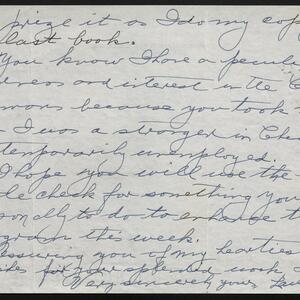 prize it as I do my cop
last book.
You know I have a peculi
dness and interest in the C
mons because you took
I was a stranger in Che
temporarily unemployed.
I hope you will use the
le check for something you
sonally to do to enhance t
gram this week.
Assuring you of my hearties
shes for your splendid work
Very sincerely yours